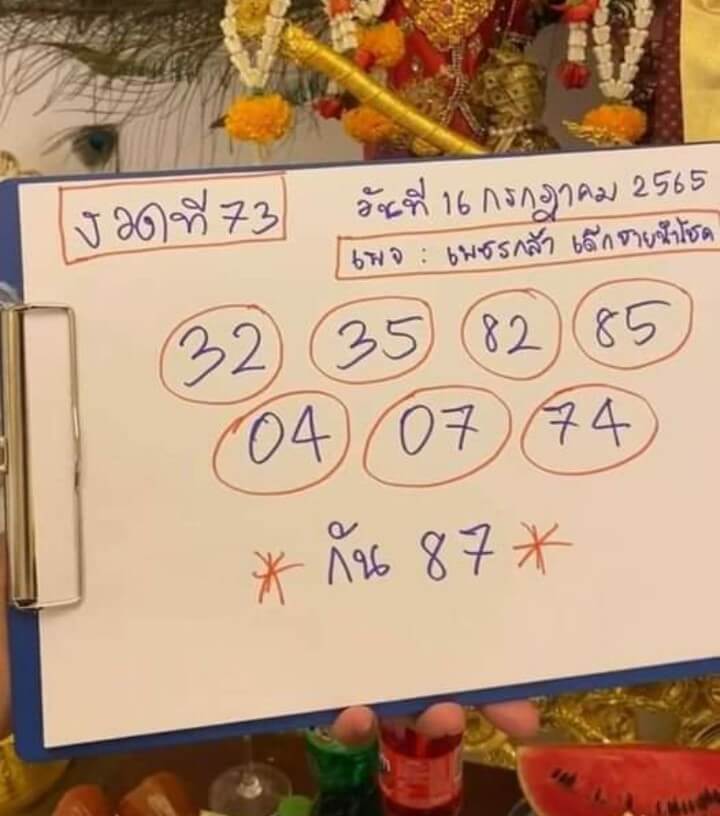 งวดที่ 73
วันที่ 16 กรกฎาคม 2565
เพจ : เพชรกล้า เด็กชายนำโชค
32 35 82 85
04 07 74
* กัน 87 *